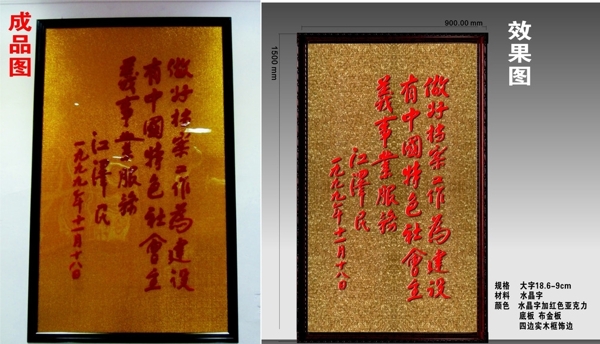 成品图
做好档案工作为建设
有中国特色社会主
义事业服务
江泽民
一九九九年十一月十八日
效果图
900.00 mm
1500 mm
做好档案工作为建设
有中國特色社會主
義事業服務
江澤民
一九九九年十一月十八日
规格 大字18.6-9cm
材料 水晶字
颜色 水晶字加红色亚克力
底板 布金板
四边实木框饰边